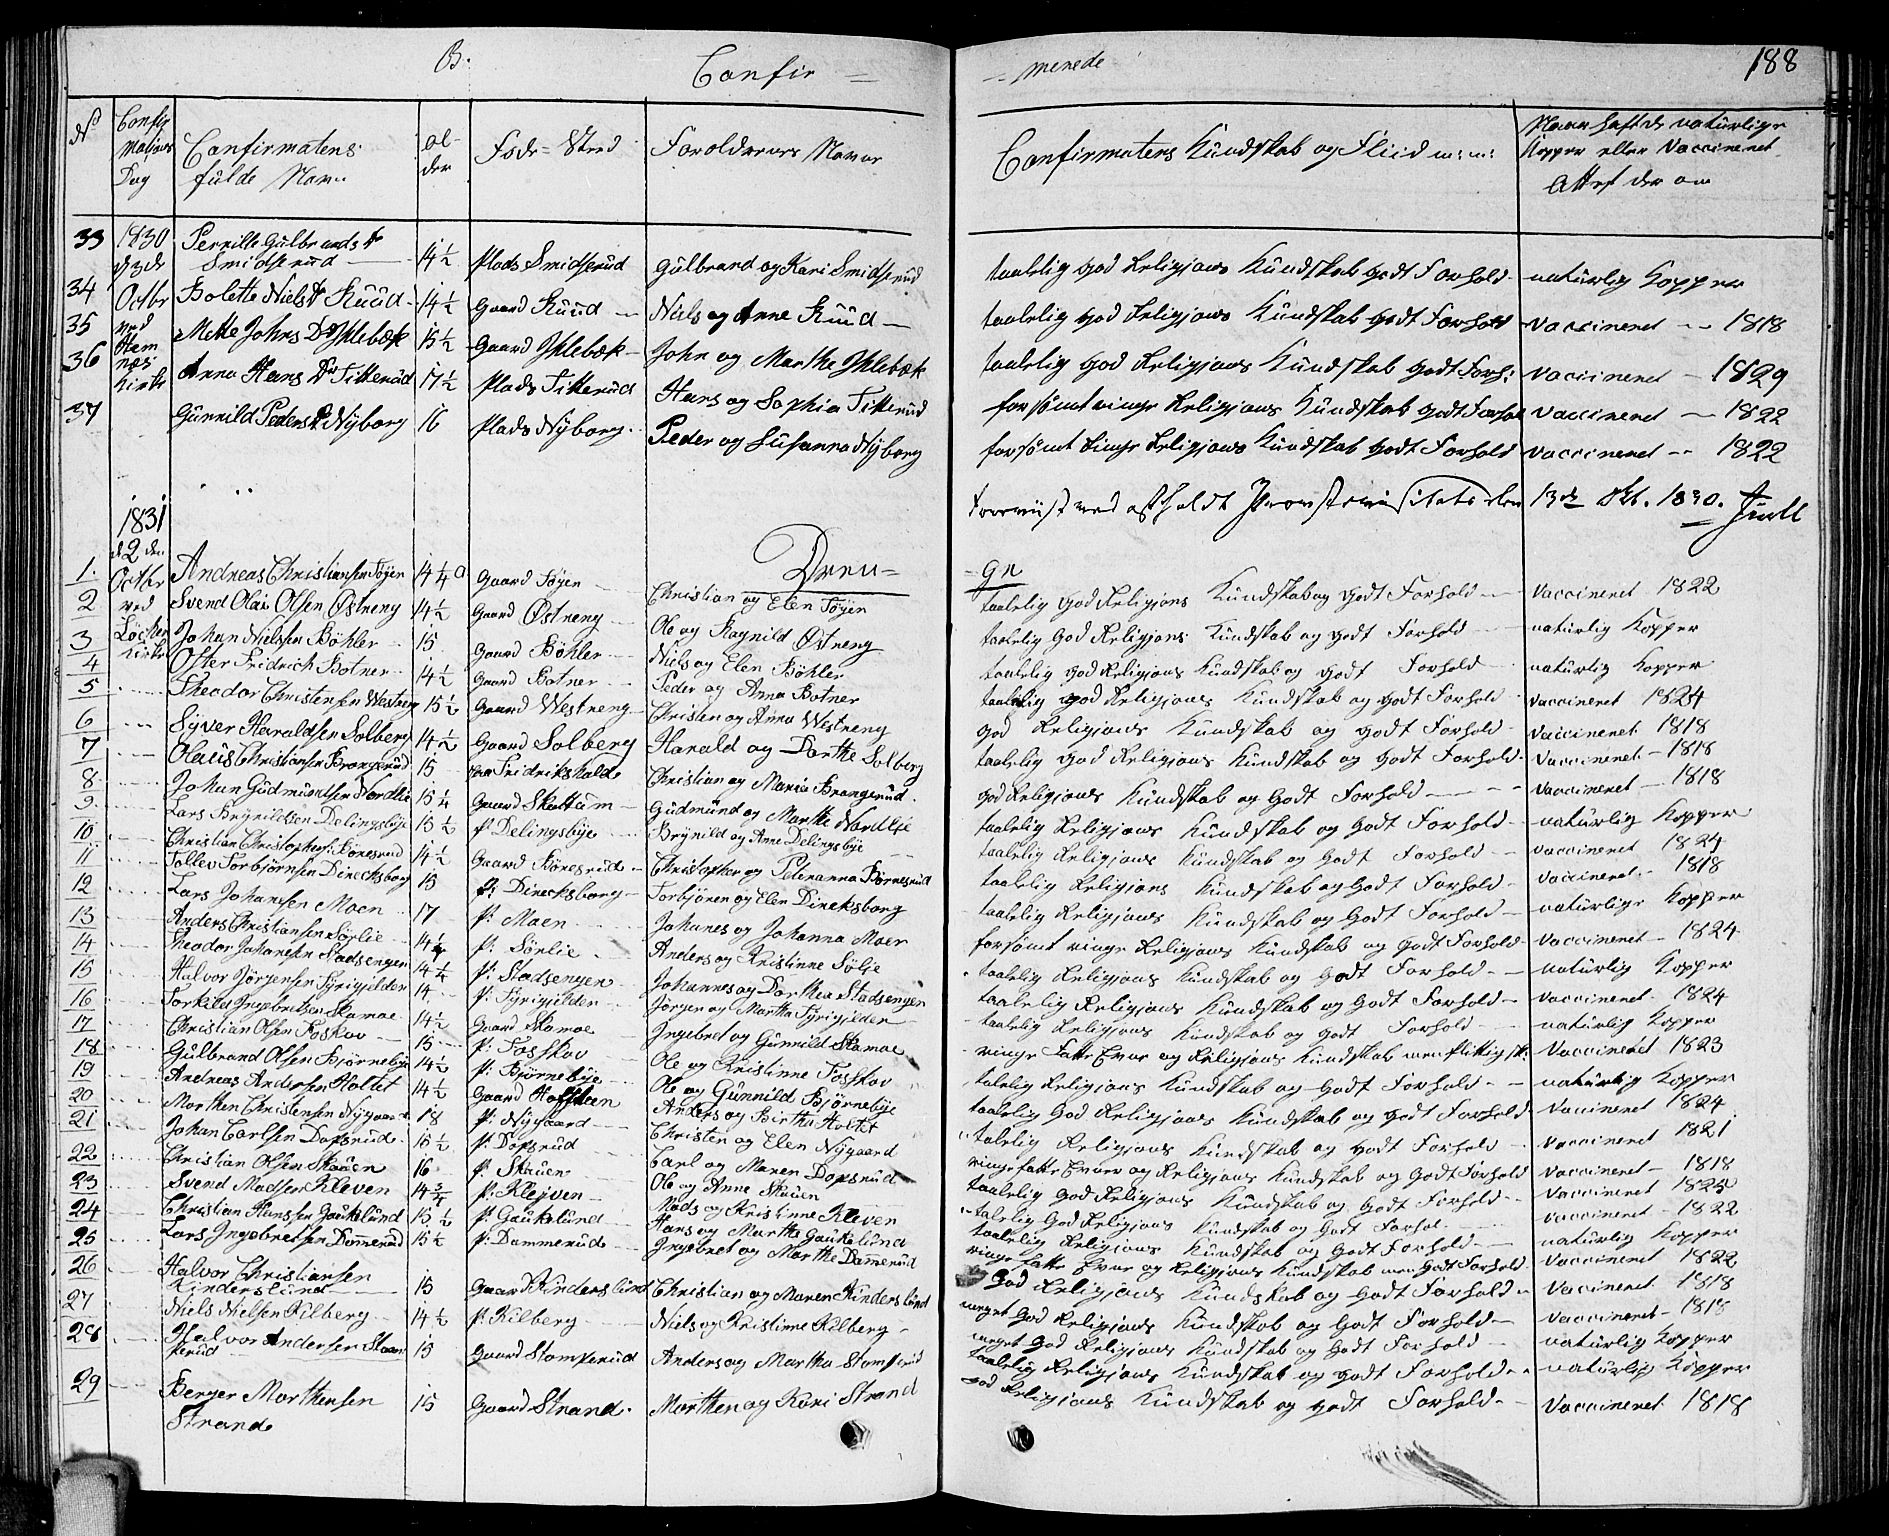 B.
Confir =
= menede
188
No
Confir
Mations
Dag
Confirmatens
fulde Navn
Al-
der
Føde=Sted
Forældrenes Navne
Confirmatens Kundskab og Fliid m: m:
Naar havt de natürlige
Kopper eller Vaccineret
Attest der om
33 1830 Pernille Gulbrands Dr
d 3de Smidserud 14½ Plads Smidserud Gulbrand og Kari Smidserud taalelig god Religjons Kundskab godt Forhold natürlig Kopper
34 Octbr Bolette Niels Dr Ruud 14½ Gaard Ruud Niels og Anne Ruud taalelig god Religjons Kundskab godt Forhold Vaccineret 1818
35 ved Mette Johns Dr Yslebæk 15½ Gaard Yslebæk John og Marthe Yslebæk taalelig god Religjons Kundskab godt Forh: Vaccineret 1829
Hem
næs
Kirke
36 Anna Hans Dr Titterud 17½ Plads Titterud Hans og Sophia Titterud forsømt ringe Religjons Kundskab godt Forhold Vaccineret 1822
37 Gunnild Peders Dr Nyborg 16 Plads Nyborg Peder og Susanna Nyborg forsømt ringe Religjons Kundskab godt Forhold Vaccineret 1822
Foreviist ved afholdt Provstevisitats den 13de Okt. 1830.
1831
d 2den
Octbr
ved
Kirke
Dren=
=ge
1. Andreas Christiansen Tøyen 14¼ Gaard Tøyen Christian og Elen Tøyen taalelig God Religjons Kundskab og godt Forhold Vaccineret 1822
2 Svend Olai Olsen Østneng 14½ Gaard Østneng Ole og Ragnild Østneng taalelig God Religjons Kundskab og godt Forhold natürlig Kopper
3 Johan Nielsen Bøhler 15 Gaard Bøhler Niels og Elen Bøhler taalelig god Religjons Kundskab og godt Forhold natürlig Kopper
4 Fridrich Botner 14½ Gaard Botner Peder og Anna Botner taalelig god Religjons Kundskab og godt Forhold Vaccineret 1824
5 Theodor Christensen Westneng 15½ Gaard Westneng Christen og Anna Westneng god Religjons Kundskab og godt Forhold Vaccineret 1818
6 Syver Haraldsen Solberg 14½ Gaard Solberg Harald og Dorthe Solberg taalelig God Religjons Kundskab og godt Forhold Vaccineret 1818
7 Olaus Christiansen Brangerud 15 Fridrikshalde Christian og Maria Brangerud god Religjons Kundskab og Godt Forhold Vaccineret 1818
8 Johan Gudmundsen Nordlie 15¼ Gaard Skuttum Gudmund og Marthe Nordlie taalelig Religjons Kundskab og Godt Forhold natürlig Kopper
9 Lars Brynildsen Delingsbye 15½ P: Delingsbye Brynild og Anne Delingsbye taalelig Religjons Kundskab og Godt Forhold Vaccineret 1824
10 Christian Christophers: Børnesrud 14½ Gaard Børnesrud Christopher og Petrranna Børnesrud taalelig Religjons Kundskab og Godt Forhold Vaccineret 1818
11 Tollev Torbjørnsen Direcksborg 15 P: Direcksborg Torbjøren og Elen Direksborg taalelig Religjons Kundskab og Godt Forhold natürlige Kopper
12 Lars Johansen Moen 17 P: Moen Johanes og Johanna Moen forsømt ringe Religjons Kundskab og godt Forhold Vaccineret 1824
13 Anders Christiansen Sørlie 14½ P: Sørlie Anders og Kristinne Sølje taalelig Religjons Kundskab og Godt Forhold natürlig Kopper
14 Theodor Johanesen Stadsengen 14½ P: Stadsengen Johannes og Dorthea Stadsengen taalelig Religjons Kundskab og Godt Forhold Vaccineret 1824
15 Halvor Jørgensen Fyrigjilden 14 P: Fyrigjilden Jørgen og Martha Fyrigjilden taalelig Religjons Kundskab og godt Forhold natürlig Kopper
16 Torkild Ingebretsen Skamoe 14½ Gaard Skamoe Ingebret og Gunnild Skamoe ringe Fatte Evne og Religjons Kundskab men flittig Vaccineret 1823
17 Christian Olsen Fosskov 15 P: Fosskov Ole og Christinne Fosskov taalelig Religjons Kundskab og Godt Forhold natürlig Kopper
18 Gulbrand Olsen Bjørnebye 14½ P: Bjørnebye Ole og Gunnild Bjørnebye taalelig God Religjons Kundskab og Godt Forhold Vaccineret 1824
19 Andreas Andersen Holtet 14½ Gaard Anders og Birthe Holtet taalelig Religjons Kundskab og Godt Forhold Vaccineret 1821
20 Morthen Christensen Nygaard 18 P: Nygaard Christen og Elen Nygaard ringe fatte Evner og Religjons Kundskab og Godt Forhold Vaccineret 1818
21 Johan Carlsen Dopsrud 15½ P: Dopsrud Carl og Maren Dopsrud taalelig God Religjons Kundskab og Godt Forhold Vaccineret 1825
22 Christian Olsen Skauen 16 P: Skauen Ole og Anne Skauen taalelig God Religjons Kundskab og Godt Forhol. Vaccineret 1822
23 Svend Madsen Kleven 14¾ P: Klejven Mads og Kristinne Kleven taalelig Religjons Kundskab og Godt Forhold natürlig Kopper
24 Christian Hanssen Gaukelund 15½ P: Gaukelund Hans og Marthe Gaukelund ringe fatte Evne og Religjons Kundskab men Godt Forhold Vaccineret 1822
25 Lars Ingebretsen Dammerud 15½ P: Dammerud Ingebret og Marthe Dammerud God Religjons Kundskab og Godt Forhold Vaccineret 1818
26 Halvor Christiansen
Kinderslund 15 Gaard Kinderslund Christian og Maren Kinderslund meget God Religjons Kundskab og Godt Forhold Vaccineret 1818
27 Niels Nielsen Kilberg 14½ P: Kilberg Niels og Kristinne Kilberg meget God Religjons Kundskab og Godt Forhold natürlig Kopper
28 Halvor Andersen Stom
perud 15 Gaard Stomperud Anders og Martha Stomperud taalelig Religjons Kundskab og godt Forhold natürlig Kopper
29 Berger Morthensen
Strande 15 Gaard Strand Morthen og Kari Strand God Religjons Kundskab og godt Forhold Vaccineret 1818